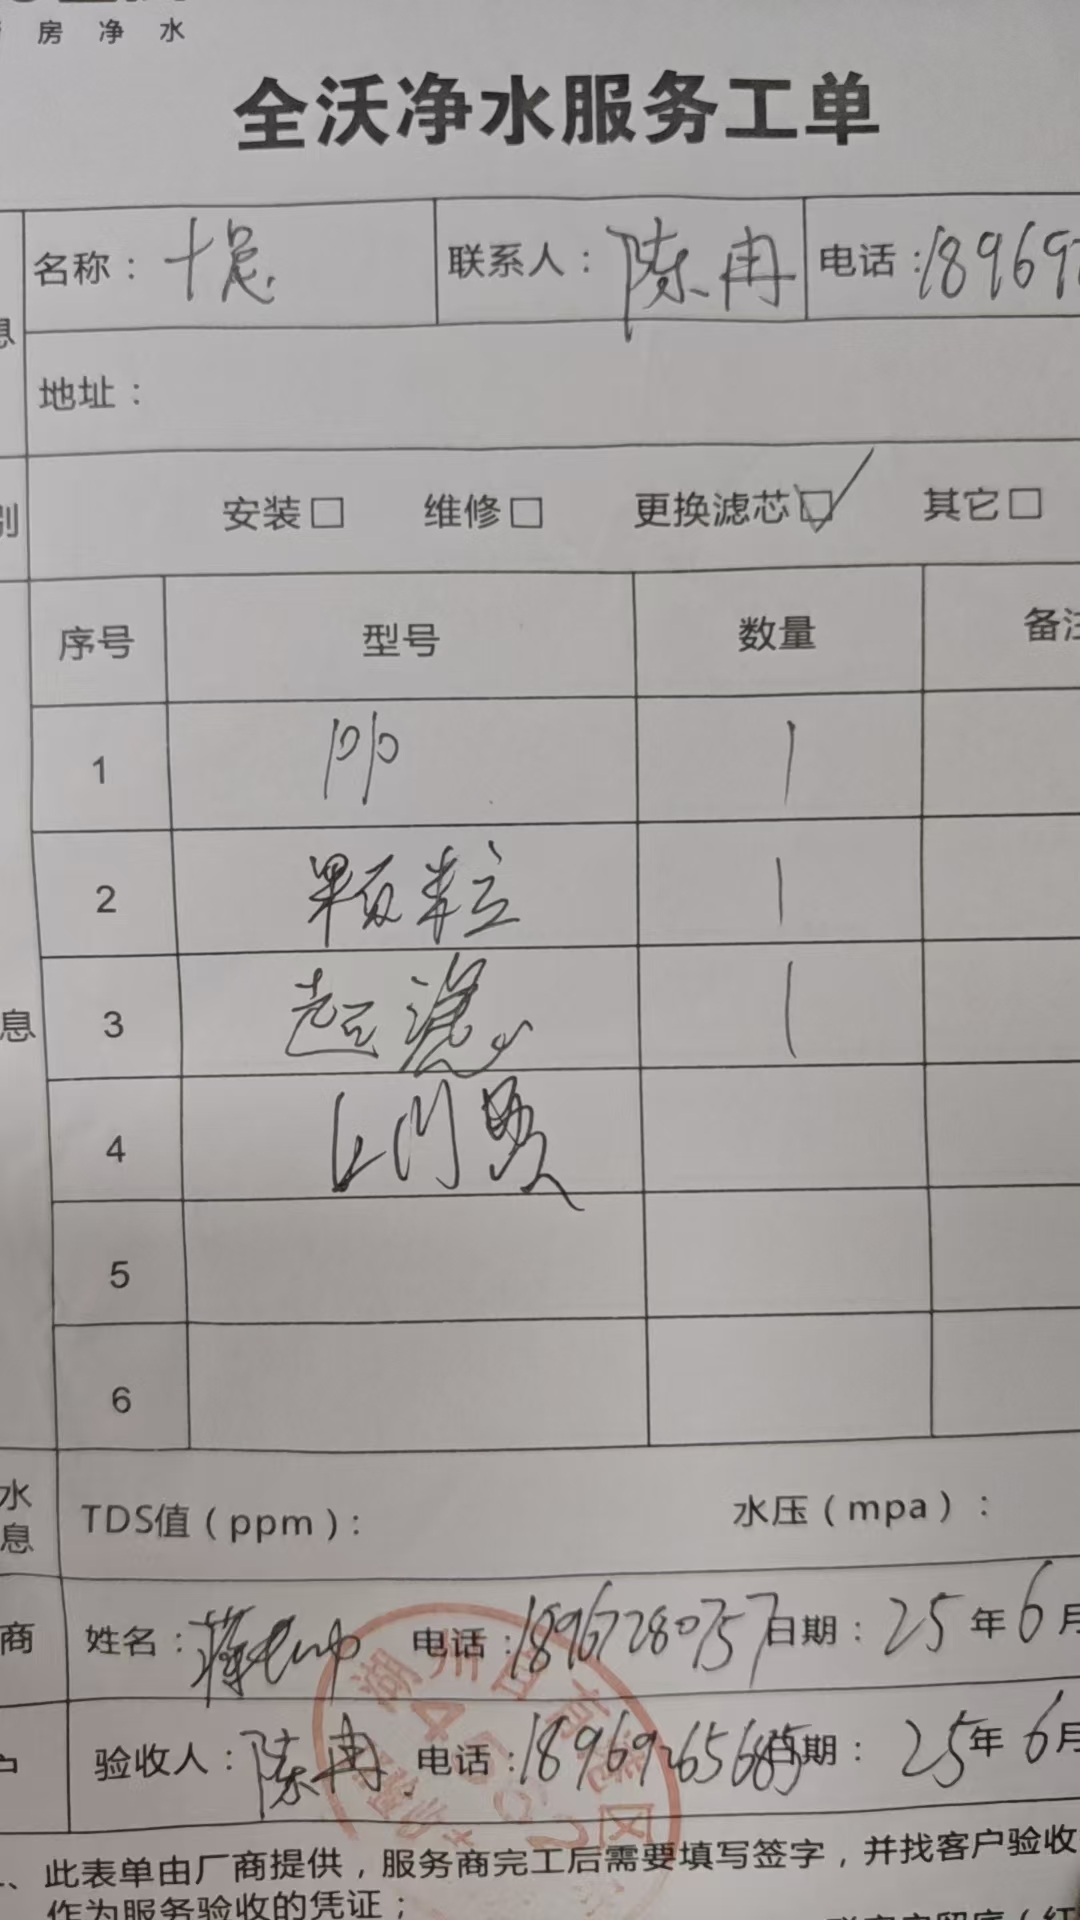 房净水
全沃净水服务工单
名称： 联系人：陈冉 电话：18969
息
地址：
别 安装□ 维修□ 更换滤芯☑ 其它□
序号 型号 数量 备注
1 PP 1
2 颗粒 1
息 3 超滤 1
4 上门费
5
6
水息 TDS值（ppm）： 水压（mpa）：
商 姓名：蒋 电话：18967280757 日期：25年6月
户 验收人：陈冉 电话：18969265685 日期：25年6月
湖州 区
、此表单由厂商提供，服务商完工后需要填写签字，并找客户验收
作为服务验收的凭证；